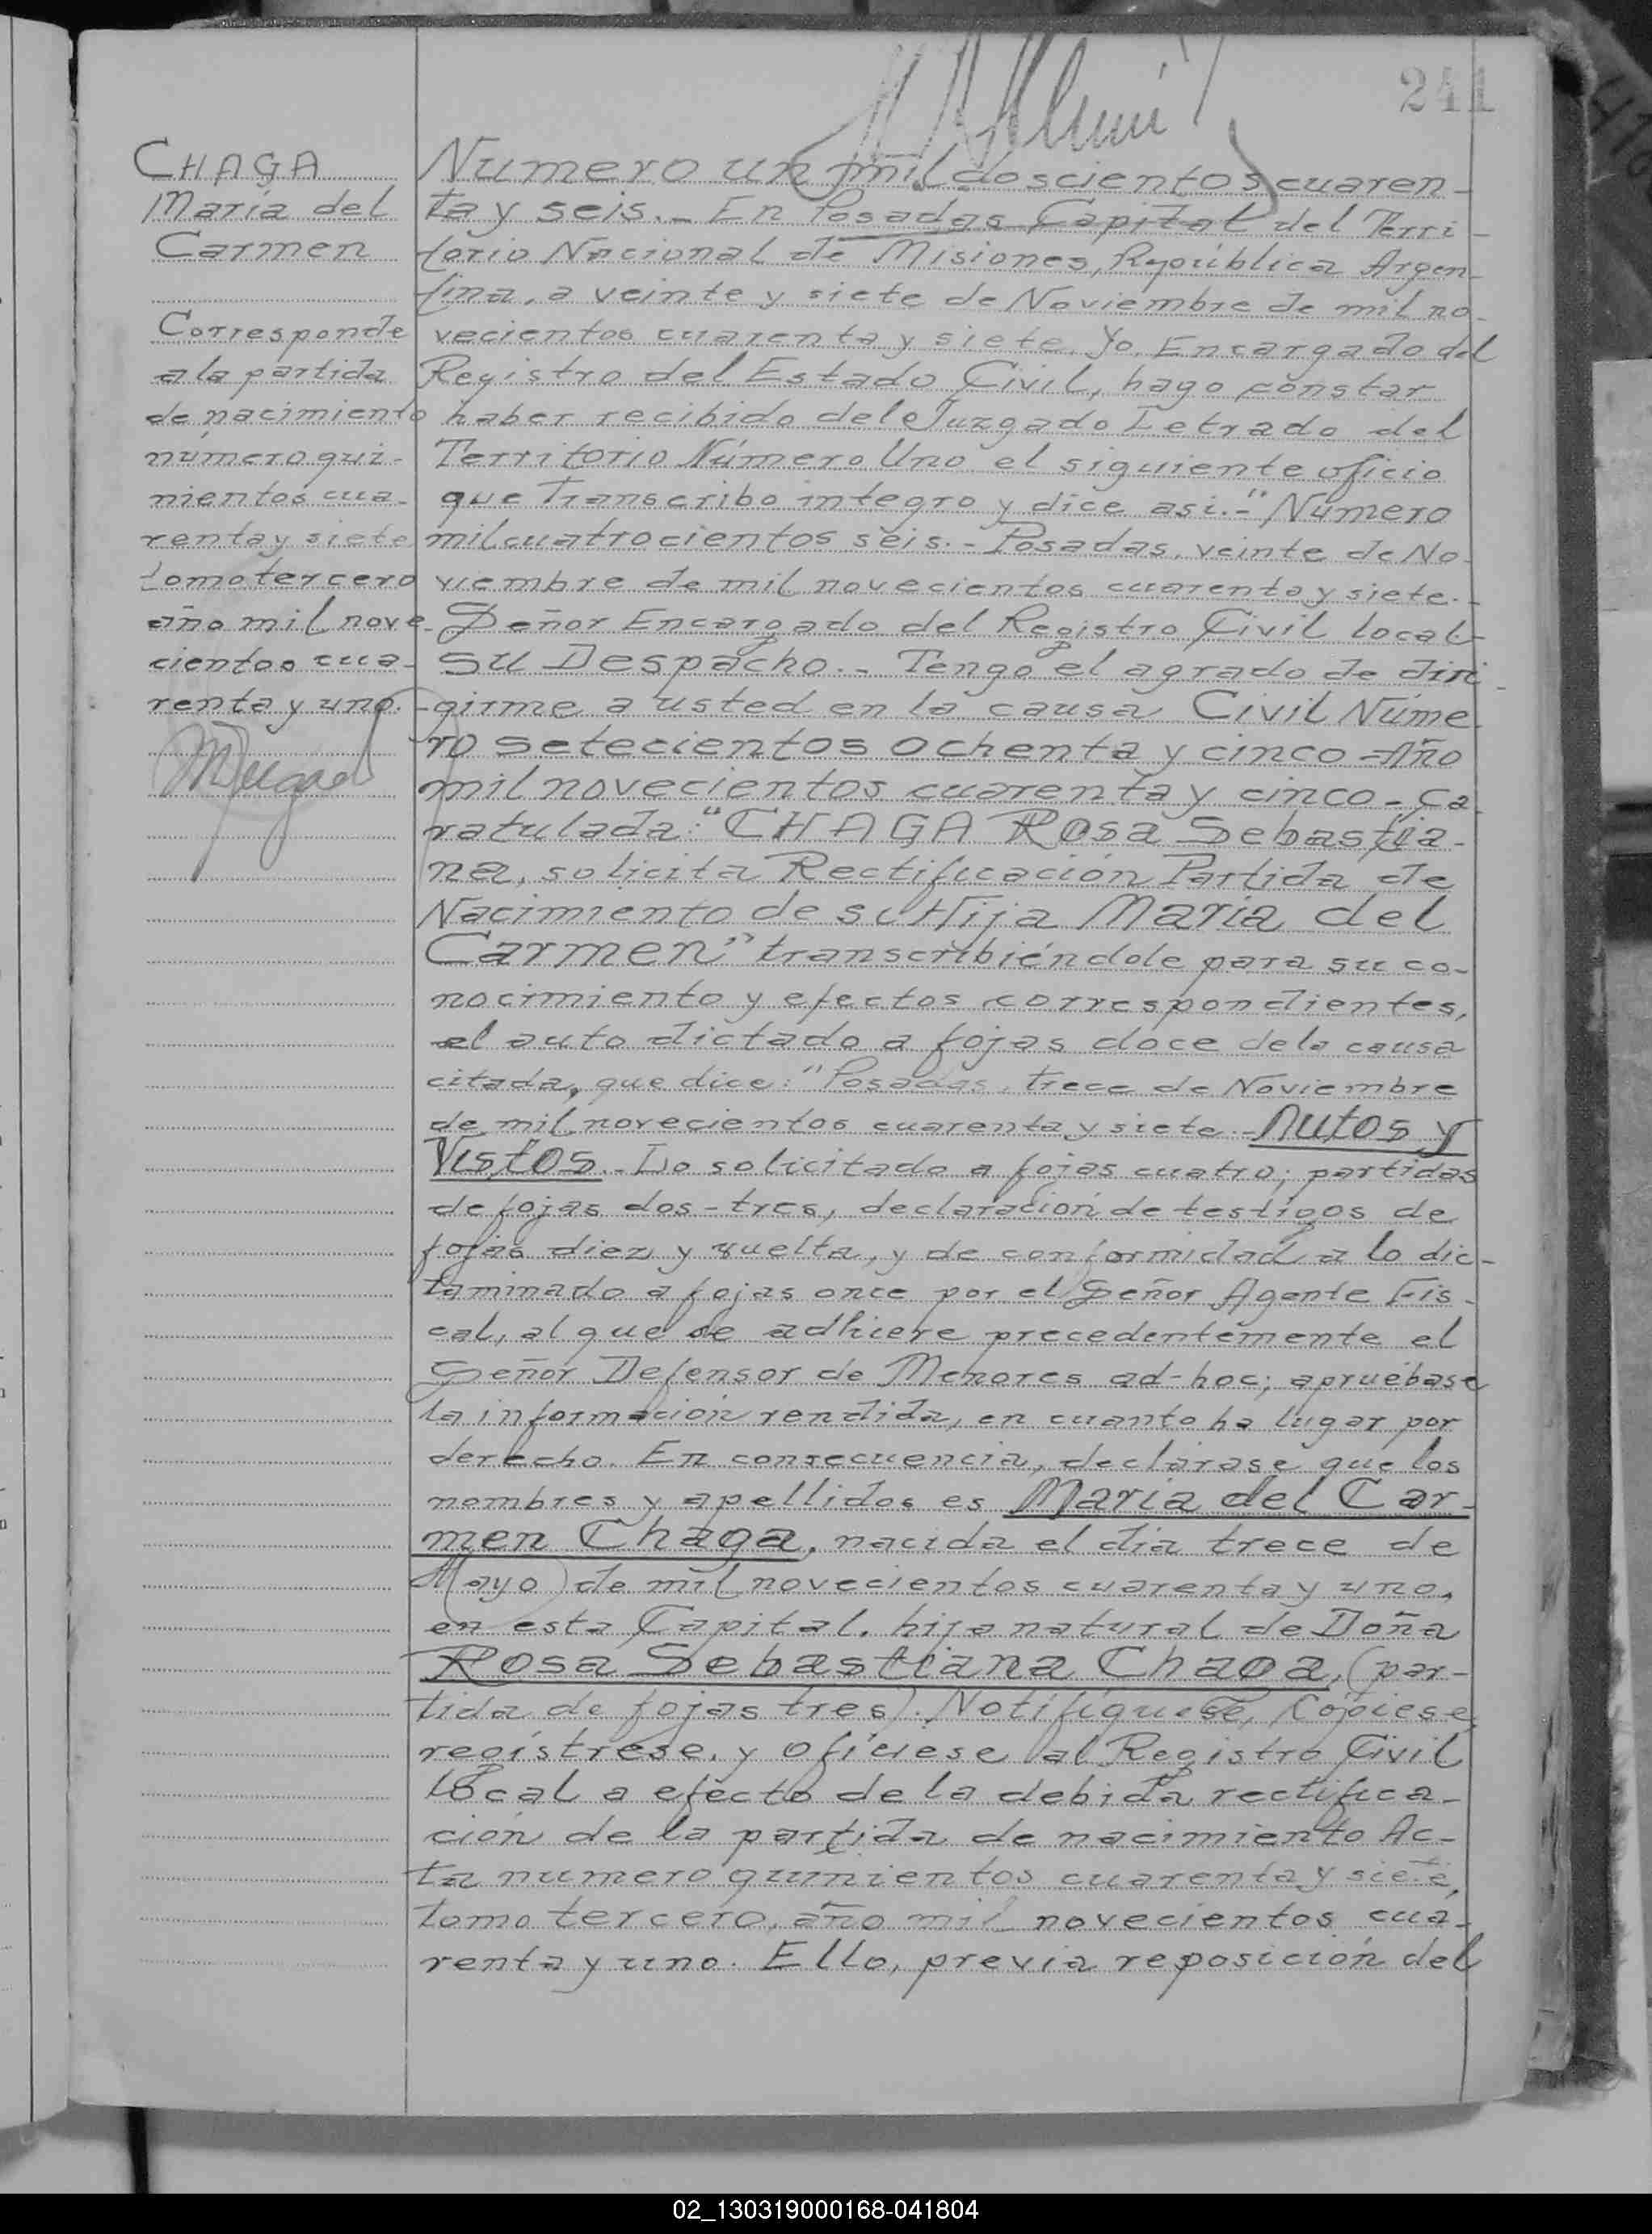 241
CHAGA
María del
Carmen
Corresponde
a la partida
de nacimiento
número qui-
nientos cua-
renta y siete
tomo tercero
año mil nove-
cientos cua-
renta y uno.
Numero un mil doscientos cuaren-
ta y seis.- En Posadas Capital del Terri-
torio Nacional de Misiones, República Argen-
tina, a veinte y siete de Noviembre de mil no-
vecientos cuarenta y siete. Yo, Encargado del
Registro del Estado Civil, hago constar
haber recibido del Juzgado Letrado del
Territorio Número Uno el siguiente oficio
que Transcribo integro y dice asi.- "Número
mil cuatrocientos seis.- Posadas, veinte de No-
viembre de mil novecientos cuarenta y siete.-
Señor Encargado del Registro Civil local-
Su Despacho.- Tengo el agrado de diri-
girme a usted en la causa Civil Núme-
ro setecientos ochenta y cinco-Año
mil novecientos cuarenta y cinco-Ca-
ratulada: "CHAGA Rosa Sebastia-
na, solicita Rectificación Partida de
Nacimiento de su Hija María del
Carmen" transcribiéndole para su co-
nocimiento y efectos correspondientes,
el auto dictado a fojas doce de la causa
citada, que dice: "Posadas, trece de Noviembre
de mil novecientos cuarenta y siete.- Autos y
Vistos.- Lo solicitado a fojas cuatro; partidas
de fojas dos-tres, declaración de testigos de
fojas diez y vuelta, y de conformidad a lo dic-
taminado a fojas once por el Señor Agente Fis-
cal, al que se adhiere precedentemente el
Señor Defensor de Menores ad-hoc; apruébase
la información rendida, en cuanto ha lugar por
derecho. En consecuencia, declárase que los
nombres y apellidos es María del Car-
men Chaga, nacida el dia trece de
Mayo de mil novecientos cuarenta y uno,
en esta Capital, hija natural de Doña
Rosa Sebastiana Chaga, (par-
tida de fojas tres). Notifíquese, Cópiese,
regístrese, y ofíciese al Registro Civil
local a efecto de la debida rectifica-
ción de la partida de nacimiento Ac-
ta numero quinientos cuarenta y siete,
tomo tercero, año mil novecientos cua-
renta y uno. Ello, previa reposición del
02_130319000168-041804